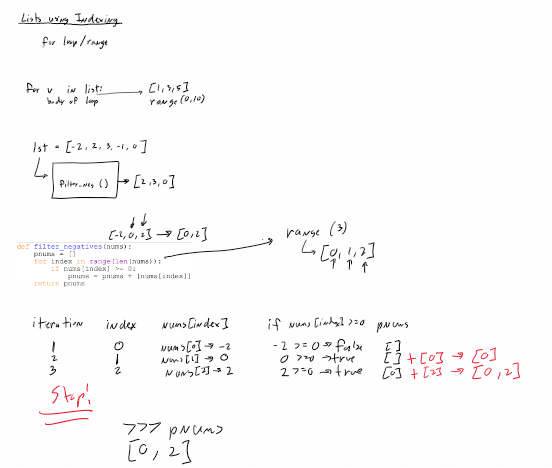 Lists using Indexing
for loop/range
for v in list: → [1,3,5]
body of loop range(0,10)
lst = [-2, 2, 3, -1, 0]
filter_neg () → [2,3,0]
[-2,0,2] → [0,2]
range (3)
[0,1,2]
def filter_negatives(nums):
pnums = []
for index in range(len(nums)):
if nums[index] >= 0:
pnums = pnums + [nums[index]]
return pnums
iteration index nums[index] if nums[index]>=0 pnums
1 0 nums[0] → -2 -2 >= 0 → false []
2 1 nums[1] → 0 0 >=0 → true [] + [0] → [0]
3 2 nums[2] → 2 2 >=0 → true [0] + [2] → [0,2]
Stop!
>>> pnums
[0, 2]